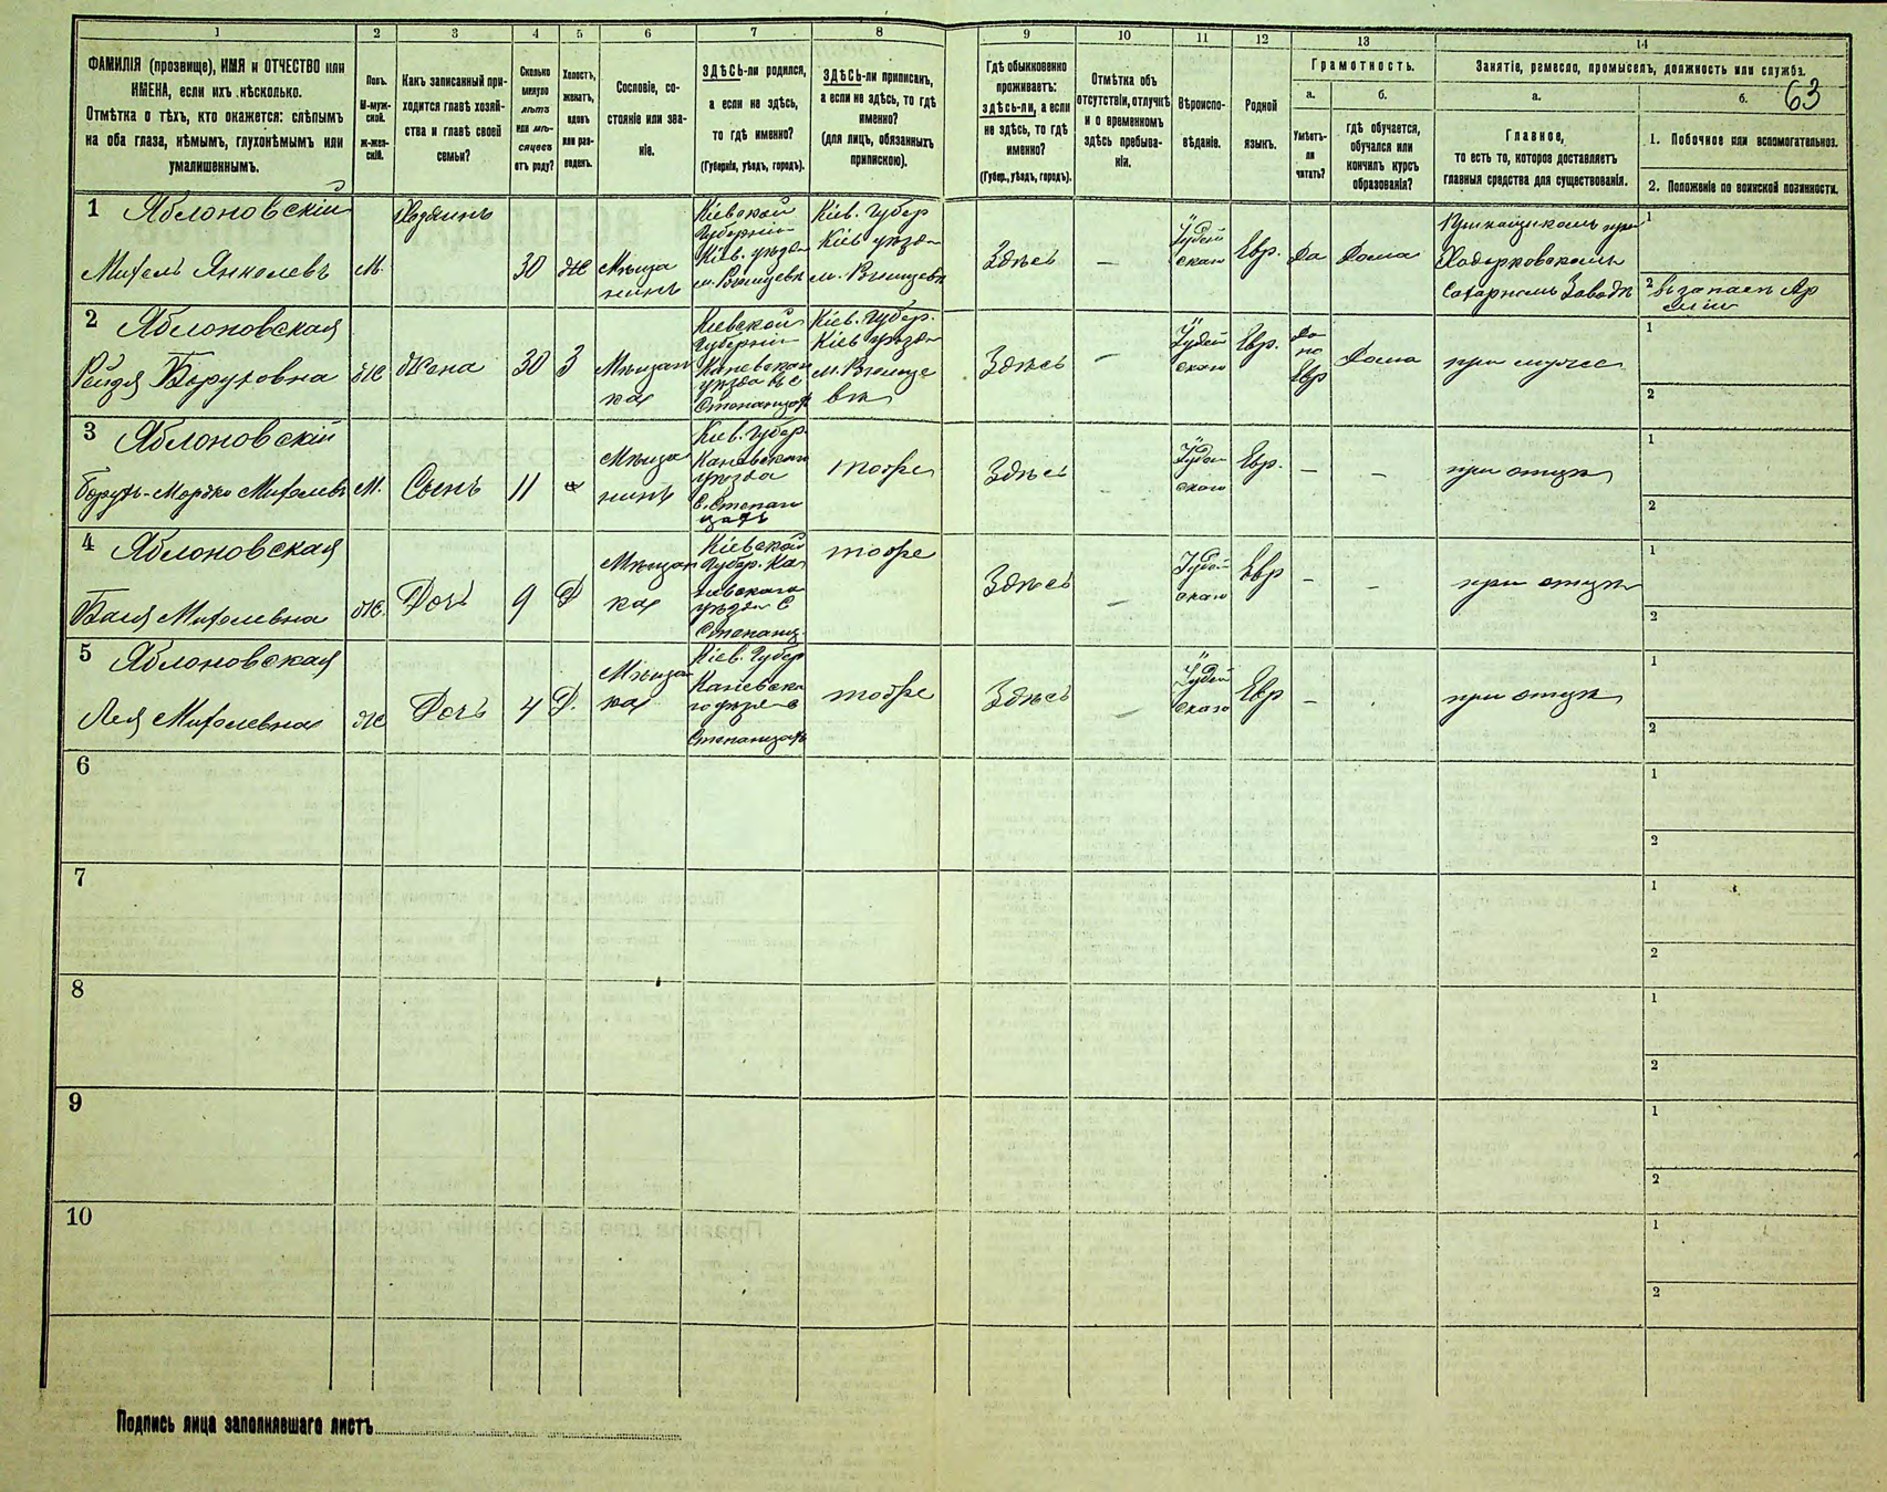 1 2 3 4 5 6 7 8 9 10 11 12 13 14
63
ФАМИЛІЯ (прозвище), ИМЯ и ОТЧЕСТВО или
ИМЕНА, если ихъ нѣсколько.
Отмѣтка о тѣхъ, кто окажется: слѣпымъ
на оба глаза, нѣмымъ, глухонѣмымъ или
умалишеннымъ.
Полъ.
М-муж-
ской.
Ж-жен-
скій.
Какъ записанный при-
ходится главѣ хозяй-
ства и главѣ своей
семьи?
Сколько
минуло
лѣтъ
или мѣ-
сяцевъ
отъ роду?
Холостъ,
женатъ,
вдовъ
или раз-
веденъ.
Сословіе, со-
стояніе или зва-
ніе.
ЗДѢСЬ-ли родился,
а если не здѣсь,
то гдѣ именно?
(Губернія, уѣздъ, городъ).
ЗДѢСЬ-ли приписанъ,
а если не здѣсь, то гдѣ
именно?
(для лицъ, обязанныхъ
припискою).
Гдѣ обыкновенно
проживаетъ:
здѣсь-ли, а если
не здѣсь, то гдѣ
именно?
(Губер., уѣздъ, городъ).
Отмѣтка объ
отсутствіи, отлучкѣ
и о временномъ
здѣсь пребыва-
ніи.
Вѣроиспо-
вѣданіе.
Родной
языкъ.
Грамотность.
а.
Умѣетъ-
ли
читать?
б.
гдѣ обучается,
обучался или
кончилъ курсъ
образованія?
Занятіе, ремесло, промыселъ, должность или служба.
а.
Главное,
то есть то, которое доставляетъ
главныя средства для существованія.
б.
1. Побочное или вспомогательное.
2. Положеніе по воинской повинности.
1 Яблоновскій
Михель Янкелевъ
м.
Хозяинъ
30
же
Мѣща
нинъ
Кіевской
Губерніи
Кіев. уѣзда
м. Вѣнцевк
Кіев. Губер
Кіев уѣзда
м. Вѣнцевк
Здѣсь
—
Іудей
скаго
Евр.
Да
Дома
Ходорковскомъ
Сахарномъ Заводѣ
1
2 въ запасѣ Ар
міи
2 Яблоновская
Рейзя Боруховна
же
Жена
30
З
Мѣщан
ка
Кіевской
Губерніи
Каневскаго
уѣзда въ с
Степанцахъ
Кіев. Губер.
Кіев уѣзда
Здѣсь
—
Іудей
скаго
Евр.
Да
по
Евр
Дома
при мужѣ
1
2
3 Яблоновскій
Борухъ-Мордко Михелевъ
М.
Сынъ
11
х
Мѣща
нинъ
Кіев. Губер.
Каневскаго
уѣзда
с. Степан
цахъ
тоже
Здѣсь
—
Іудей
скаго
Евр.
—
—
при отцѣ
1
2
4 Яблоновская
Бася Михелевна
же.
Дочь
9
Д
Мѣщан
ка
Кіевской
Губер. Ка
невскаго
уѣзда с
Степанц.
тоже
Здѣсь
—
Іудей
скаго
Евр
—
—
при отцѣ
1
2
5 Яблоновская
Лея Михелевна
же
Дочь
4
Д.
Мѣщан
ка
Кіев. Губер
Каневска
го уѣзда с
Степанцахъ
тоже
Здѣсь
—
Іудей
скаго
Евр
—
при отцѣ
1
2
6
1
2
7
1
2
8
1
2
9
1
2
10
1
2
Подпись лица заполнявшаго листъ